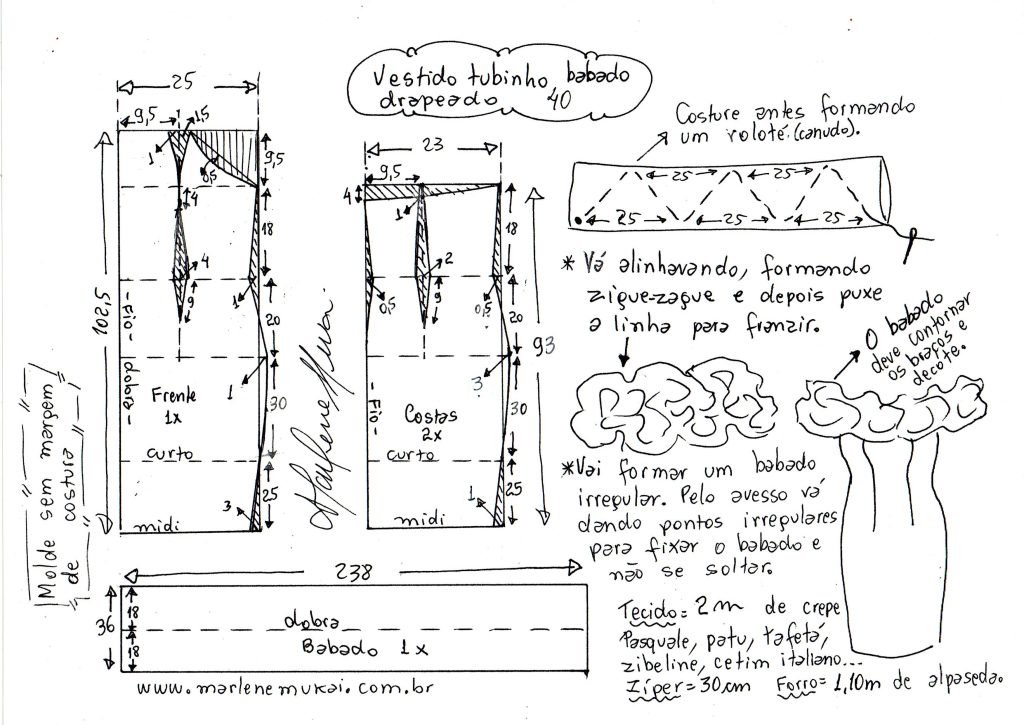 Vestido tubinho babado
drapeado 40
25
9,5
1,5
1
0,5
9,5
4
18
4
9
1
20
102,5
-Fio-
dobra-
Frente
1x
1
30
curto
3
25
midi
Marlene Mukai.
23
9,5
4
1
18
2
9
0,5
0,5
20
93
3
-Fio-
Costas
2x
30
curto
1
25
midi
Molde sem margem
de costura
238
36
18
18
dobra
Babado 1x
www.marlenemukai.com.br
Costure antes formando
um roloté.(canudo).
25
25
25
25
25
* Vá alinhavando, formando
zigue-zague e depois puxe
a linha para franzir.
O babado
deve contornar
os braços e
decote.
*Vai formar um babado
irregular. Pelo avesso vá
dando pontos irregulares
para fixar o babado e
não se soltar.
Tecido= 2m de crepe
Pasquale, patu, tafetá,
zibeline, cetim italiano...
Zíper=30cm Forro= 1,10m de alpaseda.